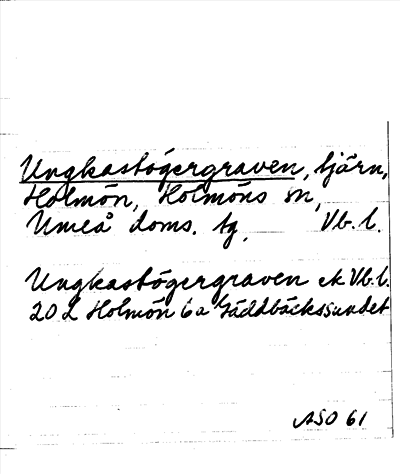 Ungkastögergraven, tjärn,
Holmön, Holmöns sn,
Umeå doms. tg. Vb. l.
Ungkastögergraven ek Vb. l.
20 L Holmön 6a Gäddbäckssundet
ASO 61